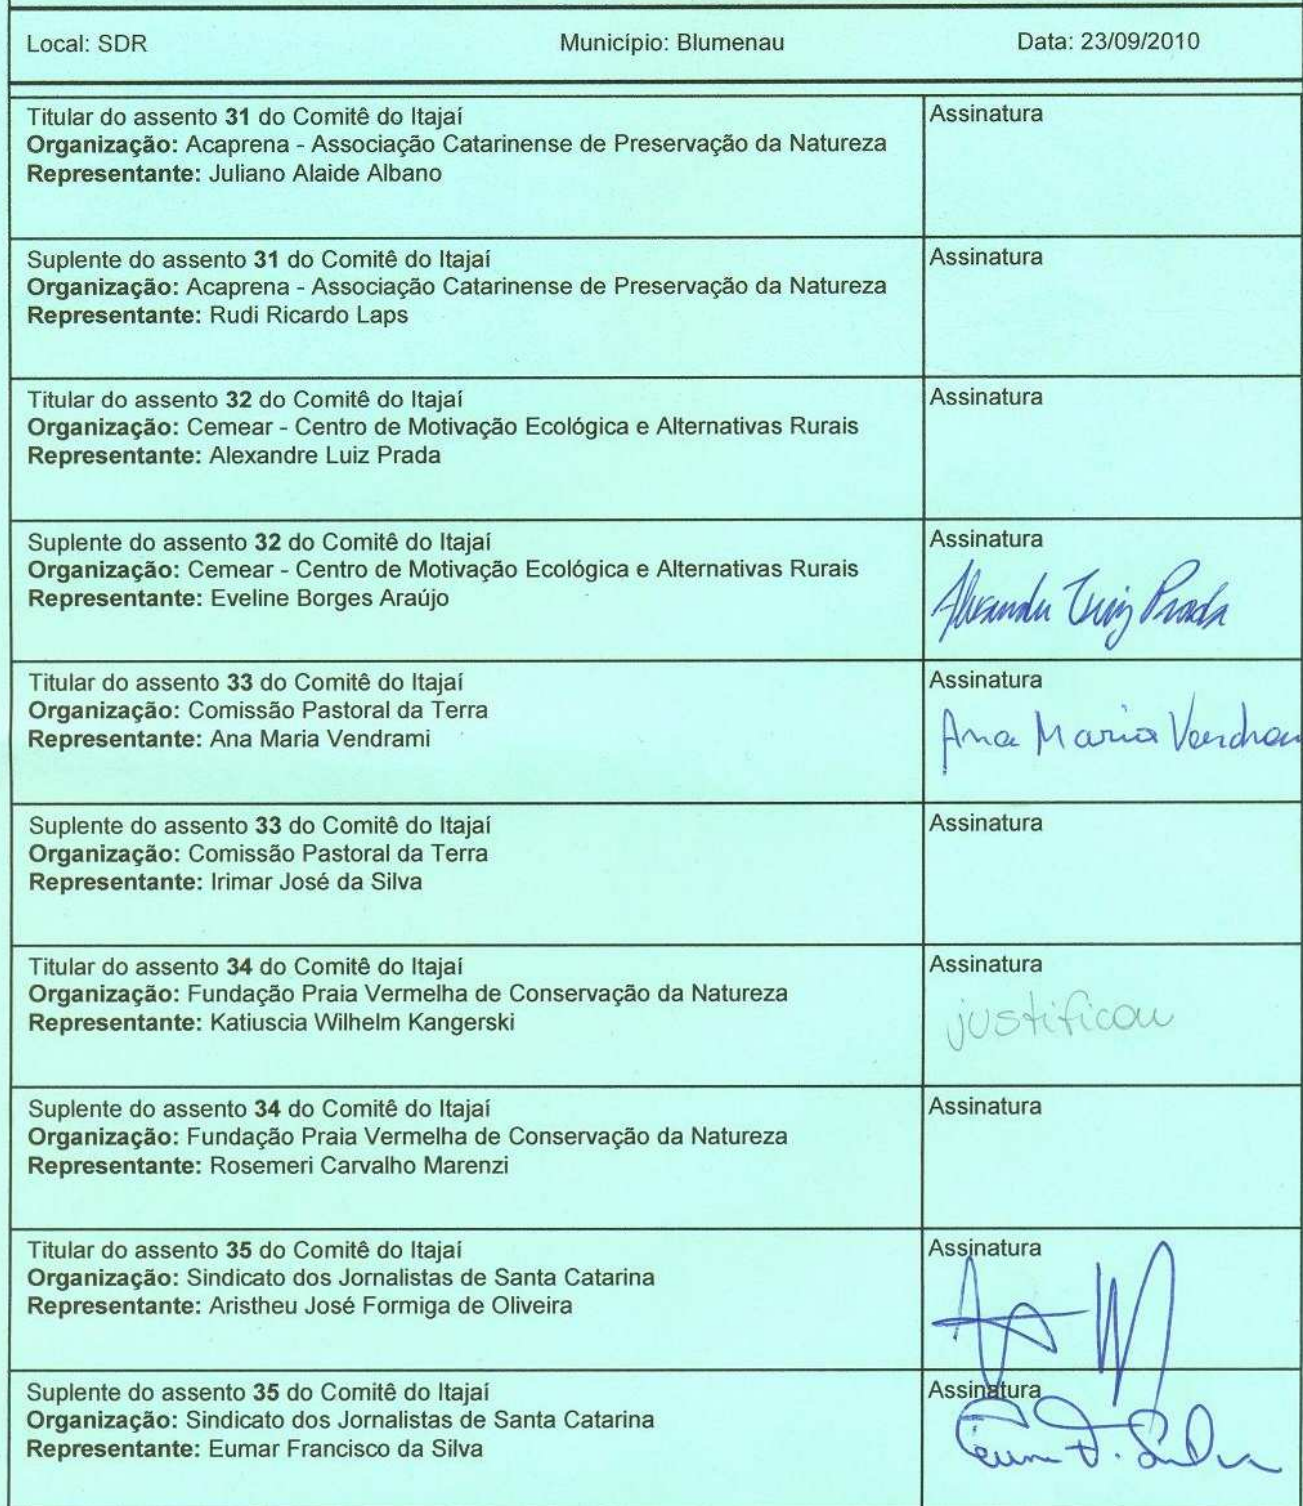 Local: SDR Município: Blumenau Data: 23/09/2010
Titular do assento 31 do Comitê do Itajaí
Organização: Acaprena - Associação Catarinense de Preservação da Natureza
Representante: Juliano Alaide Albano
Assinatura
Suplente do assento 31 do Comitê do Itajaí
Organização: Acaprena - Associação Catarinense de Preservação da Natureza
Representante: Rudi Ricardo Laps
Assinatura
Titular do assento 32 do Comitê do Itajaí
Organização: Cemear - Centro de Motivação Ecológica e Alternativas Rurais
Representante: Alexandre Luiz Prada
Assinatura
Suplente do assento 32 do Comitê do Itajaí
Organização: Cemear - Centro de Motivação Ecológica e Alternativas Rurais
Representante: Eveline Borges Araújo
Assinatura
Alexandre Luiz Prada
Titular do assento 33 do Comitê do Itajaí
Organização: Comissão Pastoral da Terra
Representante: Ana Maria Vendrami
Assinatura
Ana Maria Vendram
Suplente do assento 33 do Comitê do Itajaí
Organização: Comissão Pastoral da Terra
Representante: Irimar José da Silva
Assinatura
Titular do assento 34 do Comitê do Itajaí
Organização: Fundação Praia Vermelha de Conservação da Natureza
Representante: Katiuscia Wilhelm Kangerski
Assinatura
justificou
Suplente do assento 34 do Comitê do Itajaí
Organização: Fundação Praia Vermelha de Conservação da Natureza
Representante: Rosemeri Carvalho Marenzi
Assinatura
Titular do assento 35 do Comitê do Itajaí
Organização: Sindicato dos Jornalistas de Santa Catarina
Representante: Aristheu José Formiga de Oliveira
Assinatura
Suplente do assento 35 do Comitê do Itajaí
Organização: Sindicato dos Jornalistas de Santa Catarina
Representante: Eumar Francisco da Silva
Assinatura
F. Silva